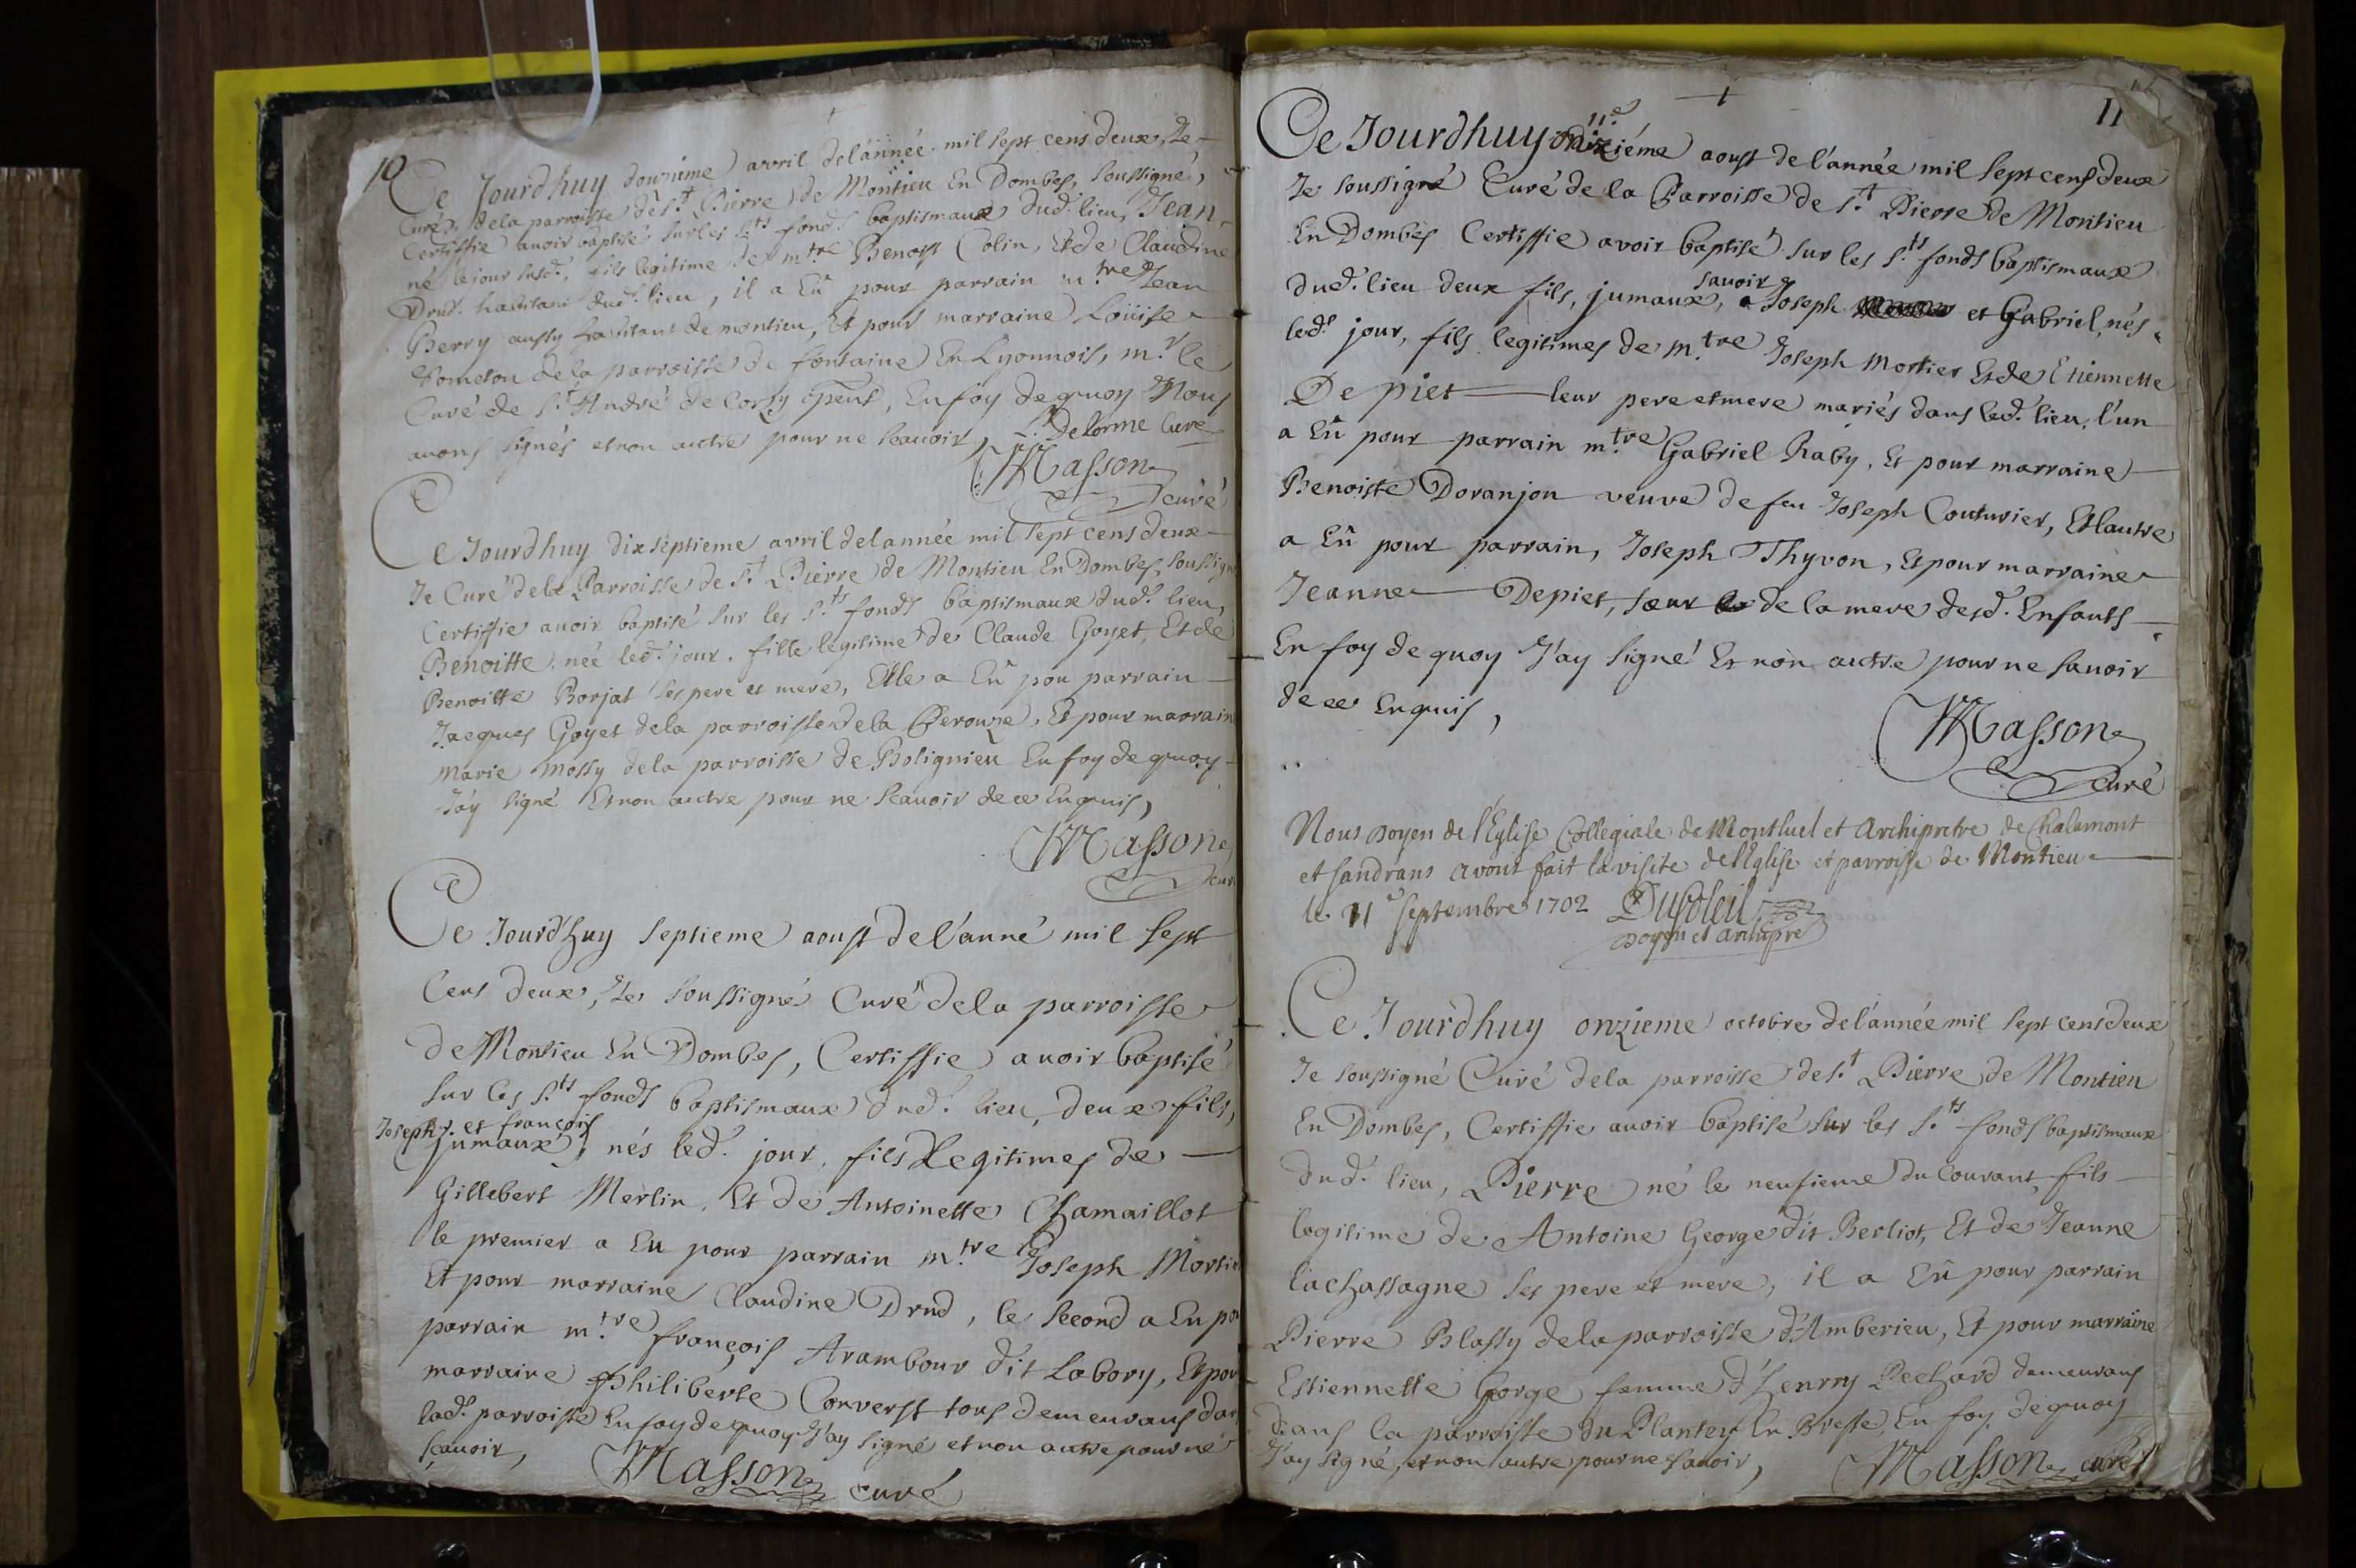 10
Ce Jourdhuy douzieme avril del'année mil sept cens deux, Je
Curé dela parroisse de S.t Pierre de Montieu En Dombes, soussigné,
Certiffie avoir baptisé sur les S.ts fonds baptismaux dud. lieu, Jean
né le jour susd., fils legitime de m.tre Benoist Colin, Et de Claudine
Drud. habitans dud. lieu, il a Eû pour parrain m.tre Jean
Berry aussy habitant de montieu, Et pour marraine Loüise
de la parroisse de fontaine En Lyonnois, m.r le
Curé de S.t André de Corsy pent, En foy de quoy Nous
avons signés et non autre pour ne scavoir, Delorme Curé
Masson
curé
Ce Jourdhuy dix septieme avril delannée mil sept cens deux
Je Curé dela Parroisse de S.t Pierre de Montieu En Dombes, soussigné
Certiffie avoir baptisé sur les S.ts fonds baptismaux dud. lieu,
Benoitte, née led. jour, fille legitime de Claude Goyet, Et de
Benoitte Borjat ses pere et mere, Elle a Eû pou parrain
Jacques Goyet dela parroisse dela Perouze, Et pour marraine
Marie Mossy dela parroisse de Bolignieu En foy de quoy
J'ay signé Et non autre pour ne scavoir de ce Enquis,
Masson
curé
Ce Jourd'huy septieme aoust de l'anné mil sept
Cens deux, Je soussigné Curé dela parroisse
de Montieu En Dombes, Certiffie avoir baptisé
sur les S.ts fonds baptismaux dud. lieu, deux fils,
Joseph et françois
jumaux, nés led. jour, fils Legitimes de
Gillebert Merlin, Et de Antoinette Chamaillot
le premier a Eu pour parrain m.tre Joseph Mortier
Et pour marraine Claudine Drud, le second a Eu pour
parrain m.tre françois Arambour dit Labory, Et pour
marraine Philiberte Converst tous demeurans dans
lad. parroisse En foy de quoy J'ay signé et non autre pour ne
scavoir,
Masson curé
11
11e
Ce Jourdhuy onziéme aoust de l'année mil sept cens deux
Je soussigné Curé de la Parroisse de S.t Pierre de Montieu
En Dombes Certiffie avoir baptisé sur les S.ts fonds baptismaux
savoir
dud. lieu deux fils, jumaux, Joseph et Gabriel, nés
led. jour, fils legitimes de m.tre Joseph Mortier Et de Etiennette
Depiet leur pere et mere mariés dans led. lieu, l'un
a Eû pour parrain m.tre Gabriel Raby, Et pour marraine
Benoitte Doranjon veuve de feu Joseph Couturier, Et lautre
a Eû pour parrain, Joseph Thyvon, Et pour marraine
Jeanne Depiet, sœur de la mere desd. Enfants
En foy de quoy J'ay signé Et non autre pour ne savoir
de ce Enquis,
Masson
curé
Nous doyen de l'Eglise Collegiale de Montluel et Archipretre de Chalamont
et sandrans avont fait la visite de l'Eglise et parroisse de Montieu
le 11e septembre 1702 Dusoleil
doyen et archipre
Ce Jourdhuy onzieme octobre del'année mil sept cens deux
Je soussigné Curé dela parroisse de S.t Pierre de Montieu
En Dombes, Certiffie avoir baptisé sur les S.ts fonds baptismaux
dud. lieu, Pierre né le neufieme du Courant, fils
legitime de Antoine George dit Berliot, Et de Jeanne
Lachassagne ses pere et mere, il a Eû pour parrain
Pierre Blassy dela parroisse d'Amberieu, Et pour marraine
Estiennette George femme d'henrry Pechard demeurans
dans la parroisse du Plantey En Bresse, En foy de quoy
J'ay signé, et non autre pour ne savoir,
Masson curé